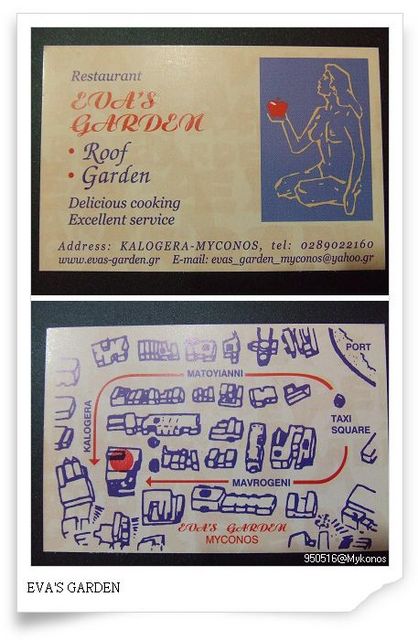 Restaurant
EVA'S
GARDEN
• Roof
• Garden
Delicious cooking
Excellent service
Address: KALOGERA-MYCONOS, tel: 0289022160
www.evas-garden.gr E-mail: evas_garden_myconos@yahoo.gr
PORT
MATOYIANNI
KALOGERA
TAXI
SQUARE
MAVROGENI
EVA'S GARDEN
MYCONOS
950516@Mykonos
EVA'S GARDEN